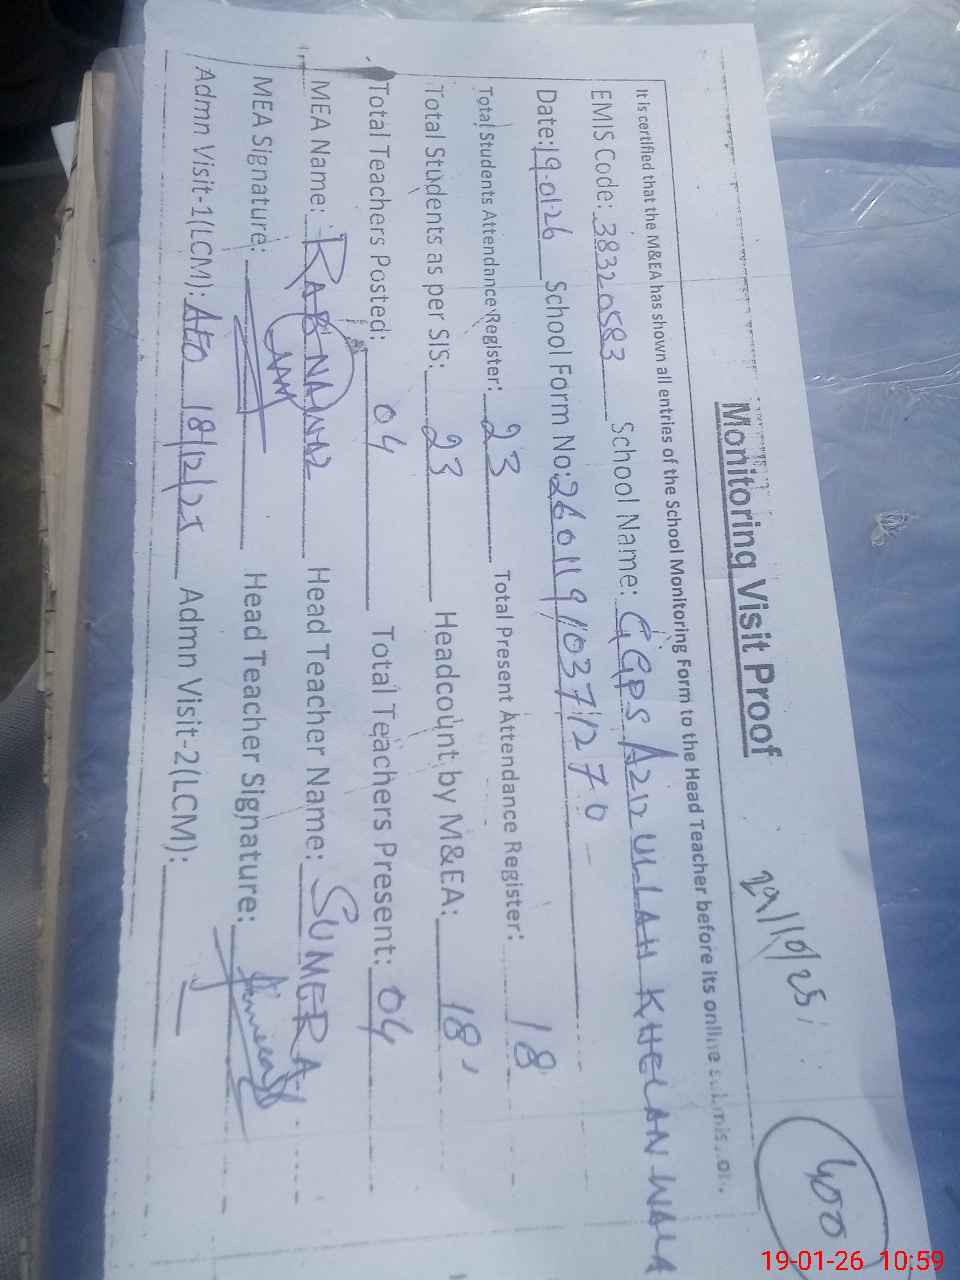 400
29/10/25
Monitoring Visit Proof
It is certified that the M&EA has shown all entries of the School Monitoring Form to the Head Teacher before its online submission.
EMIS Code: 38320583 School Name: GGPS AZIZ ULLAH KHELAN WALA
Date: 19-01-26 School Form No: 26011910371270
Total Students Attendance Register: 23 Total Present Attendance Register: 18
Total Students as per SIS: 23 Headcount by M&EA: 18
Total Teachers Posted: 04 Total Teachers Present: 04
MEA Name: RAB NAWAZ Head Teacher Name: SUMERA
MEA Signature: Head Teacher Signature:
Admn Visit-1(LCM): AEO 18/12/25 Admn Visit-2(LCM):
19-01-26 10:59